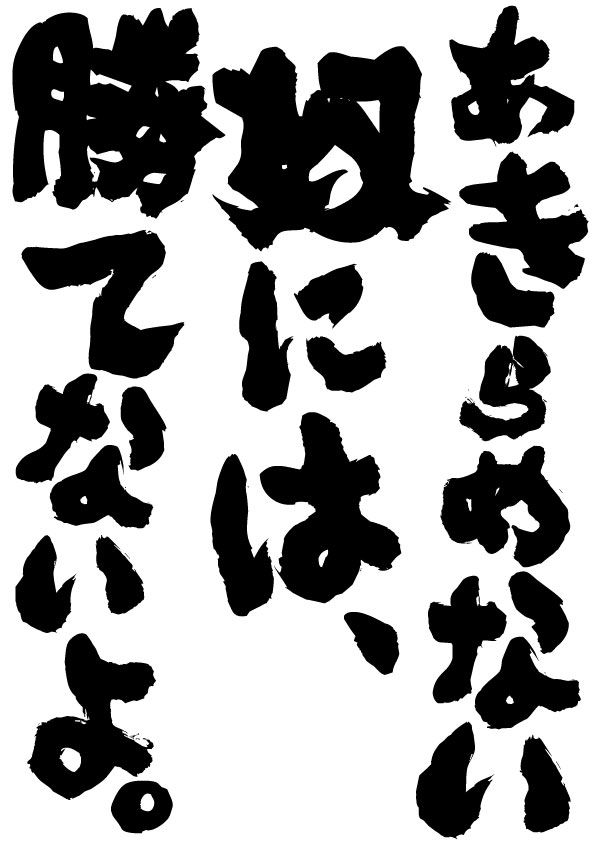 あきらめない
奴には、
勝てないよ。